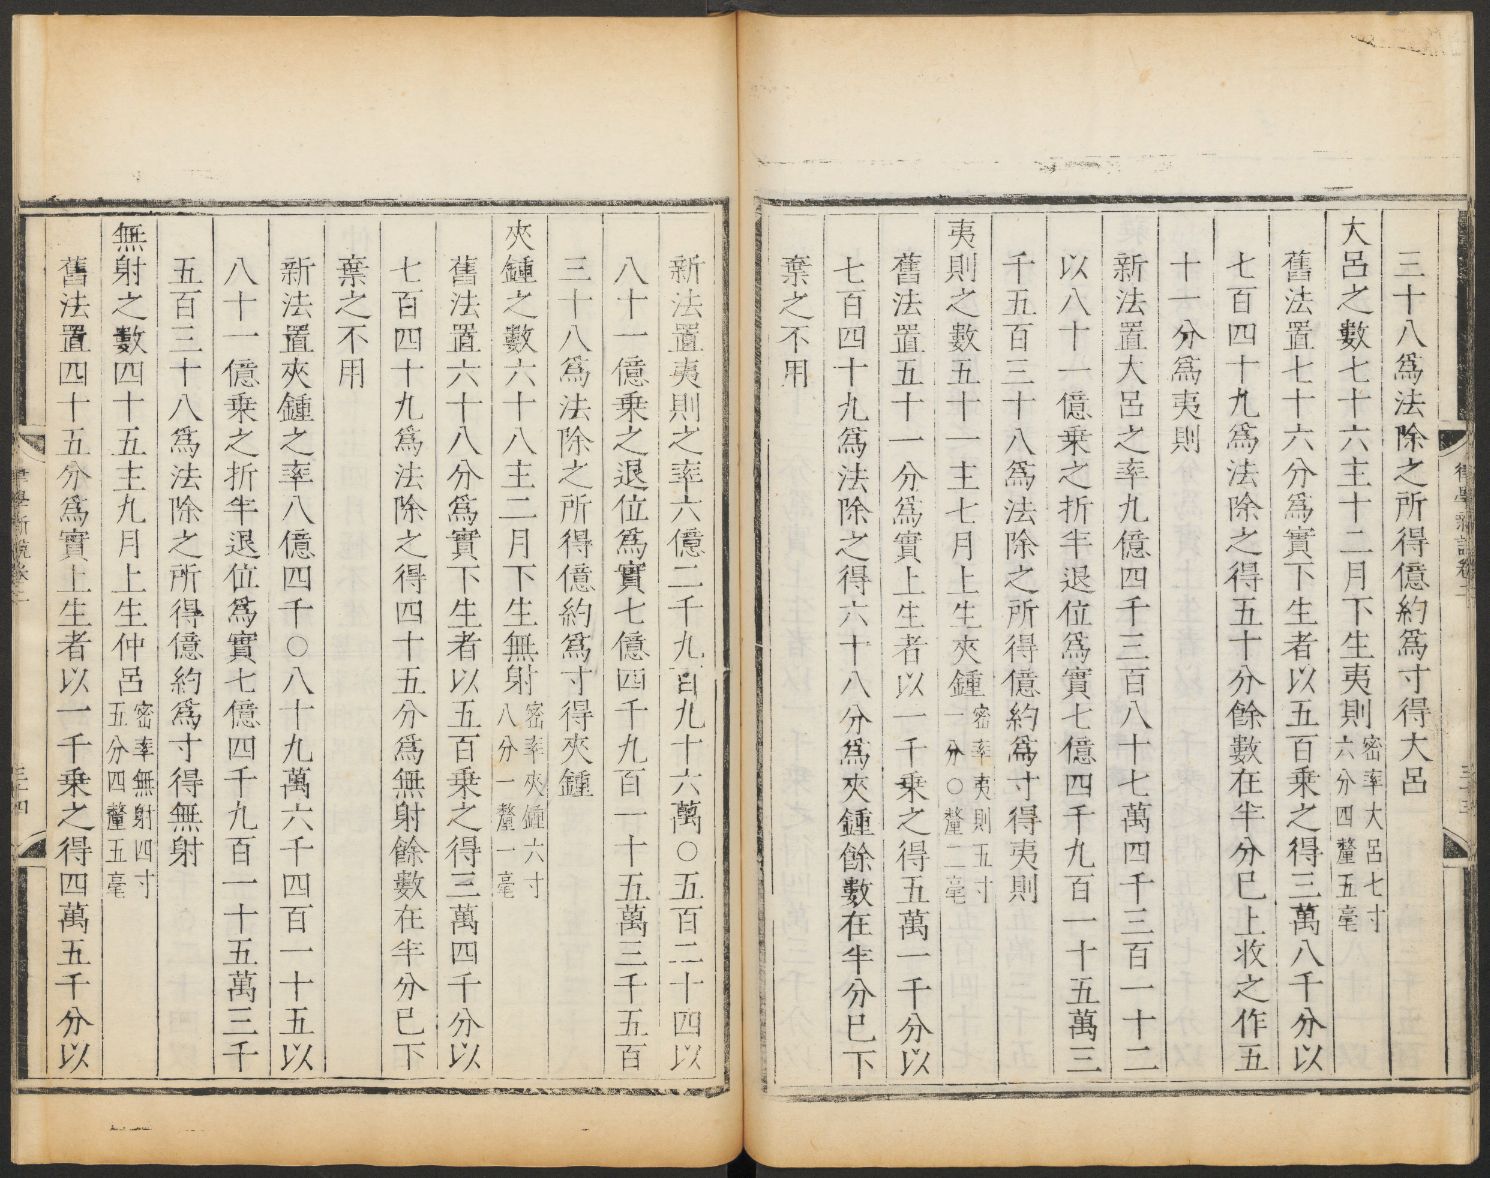 三十八爲法除之所得億約爲寸得大呂
大呂之數七十六主十二月下生夷則密率大呂七寸六分四釐五毫
舊法置七十六分爲實下生者以五百乗之得三萬八千分以
七百四十九爲法除之得五十分餘數在半分已上收之作五
十一分爲夷則
新法置大呂之率九億四千三百八十七萬四千三百一十二
以八十一億乗之折半退位爲實七億四千九百一十五萬三
千五百三十八爲法除之所得億約爲寸得夷則
夷則之數五十一主七月上生夾鍾密率夷則五寸一分〇釐二毫
舊法置五十一分爲實上生者以一千乗之得五萬一千分以
七百四十九爲法除之得六十八分爲夾鍾餘數在半分已下
棄之不用
律學新說卷二
三十三
新法置夷則之率六億二千九百九十六萬〇五百二十四以
八十一億乗之退位爲實七億四千九百一十五萬三千五百
三十八爲法除之所得億約爲寸得夾鍾
夾鍾之數六十八主二月下生無射密率夾鍾六寸八分一釐一毫
舊法置六十八分爲實下生者以五百乗之得三萬四千分以
七百四十九爲法除之得四十五分爲無射餘數在半分已下
棄之不用
新法置夾鍾之率八億四千〇八十九萬六千四百一十五以
八十一億乗之折半退位爲實七億四千九百一十五萬三千
五百三十八爲法除之所得億約爲寸得無射
無射之數四十五主九月上生仲呂密率無射四寸五分四釐五毫
舊法置四十五分爲實上生者以一千乗之得四萬五千分以
律學新說卷二
三十四